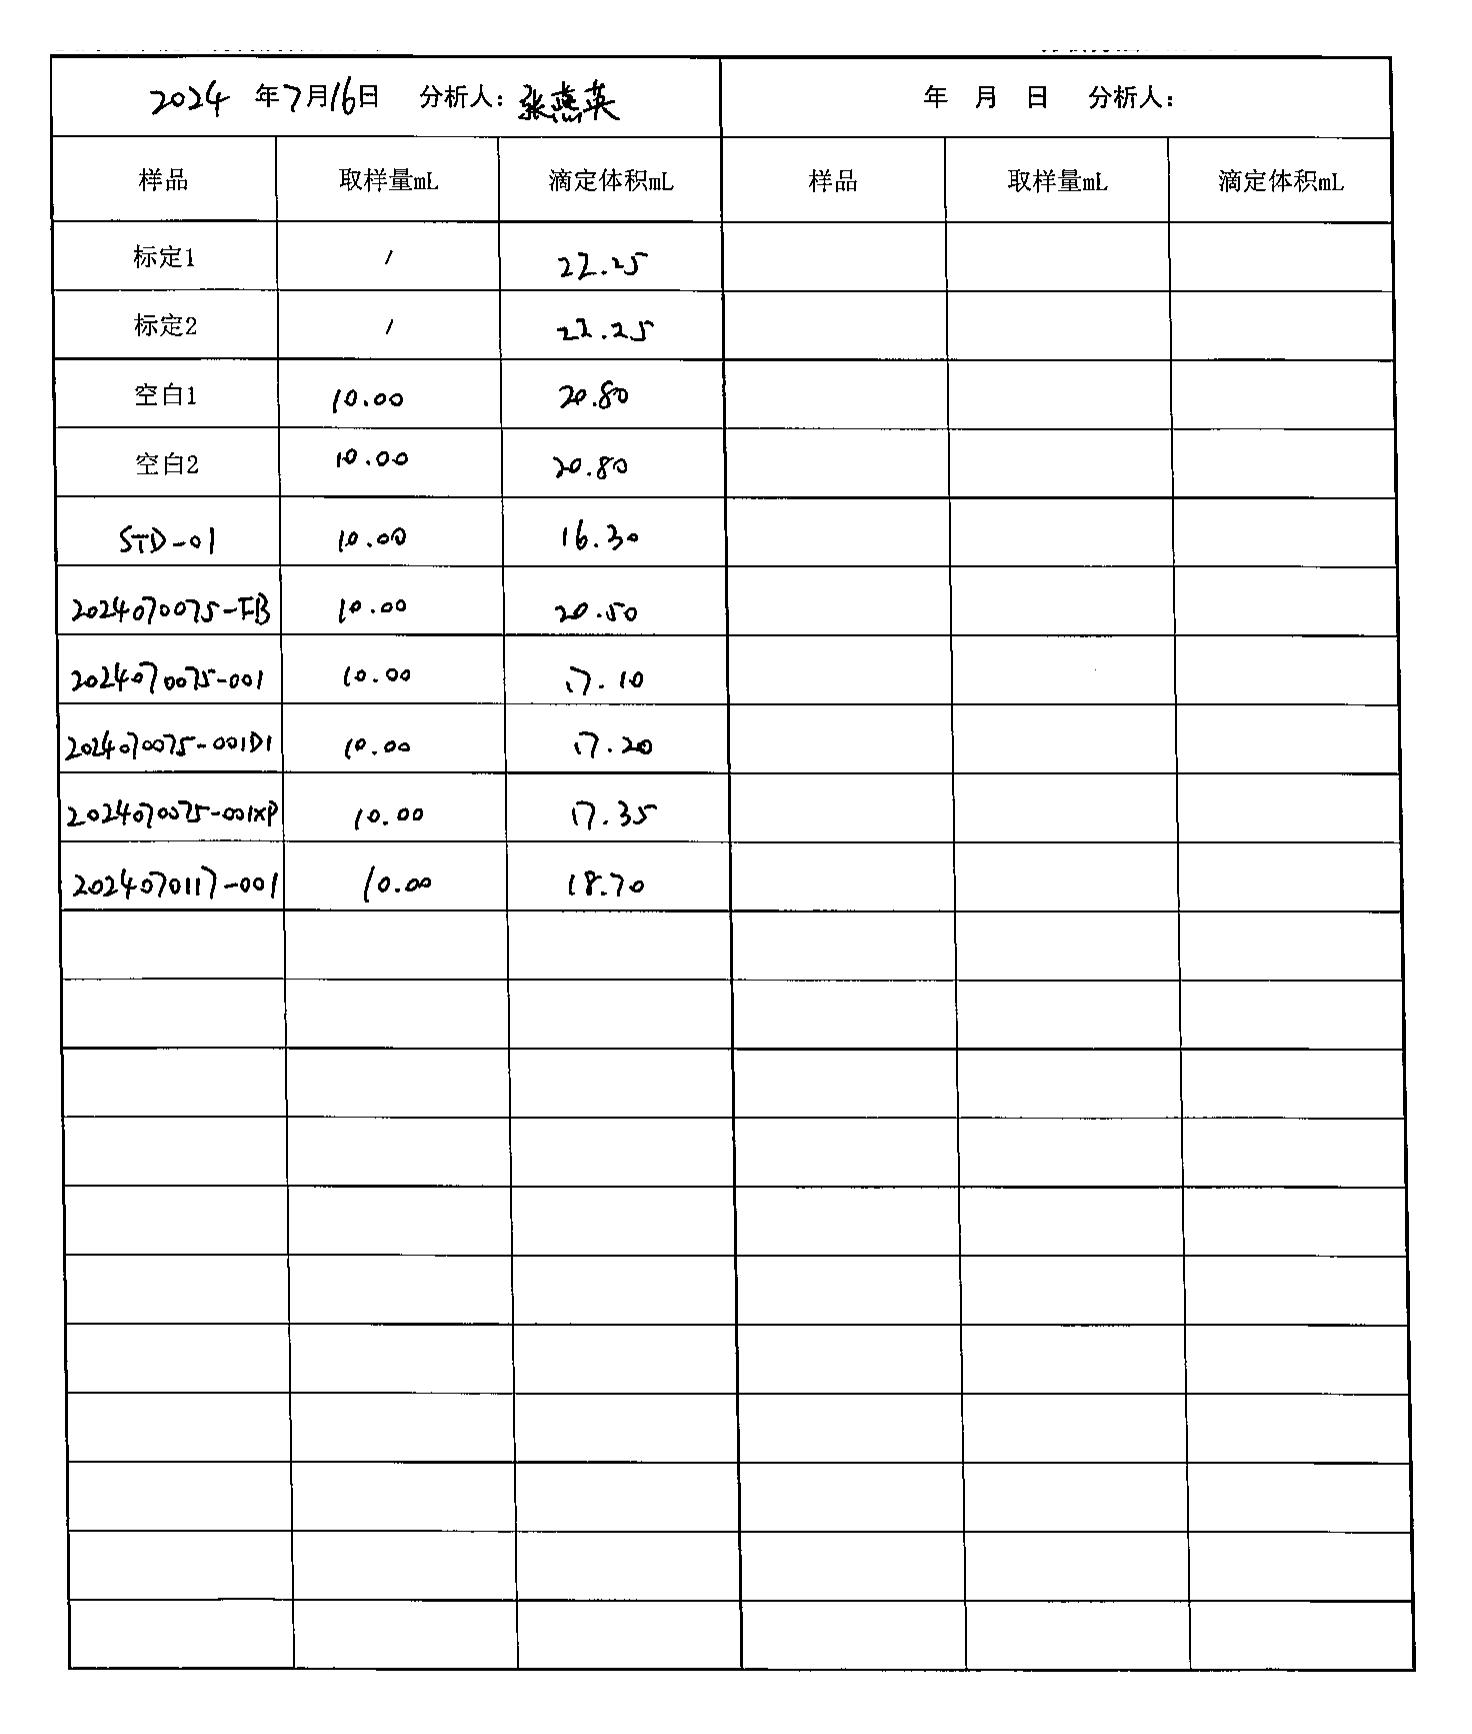 2024 年7月16日 分析人：张燕英 年 月 日 分析人：
样品 取样量mL 滴定体积mL 样品 取样量mL 滴定体积mL
标定1 / 22.25
标定2 / 22.25
空白1 10.00 20.80
空白2 10.00 20.80
STD-01 10.00 16.30
2024070075-FB 10.00 20.50
2024070075-001 10.00 17.10
2024070075-001D1 10.00 17.20
2024070075-001XP 10.00 17.35
2024070117-001 10.00 18.70